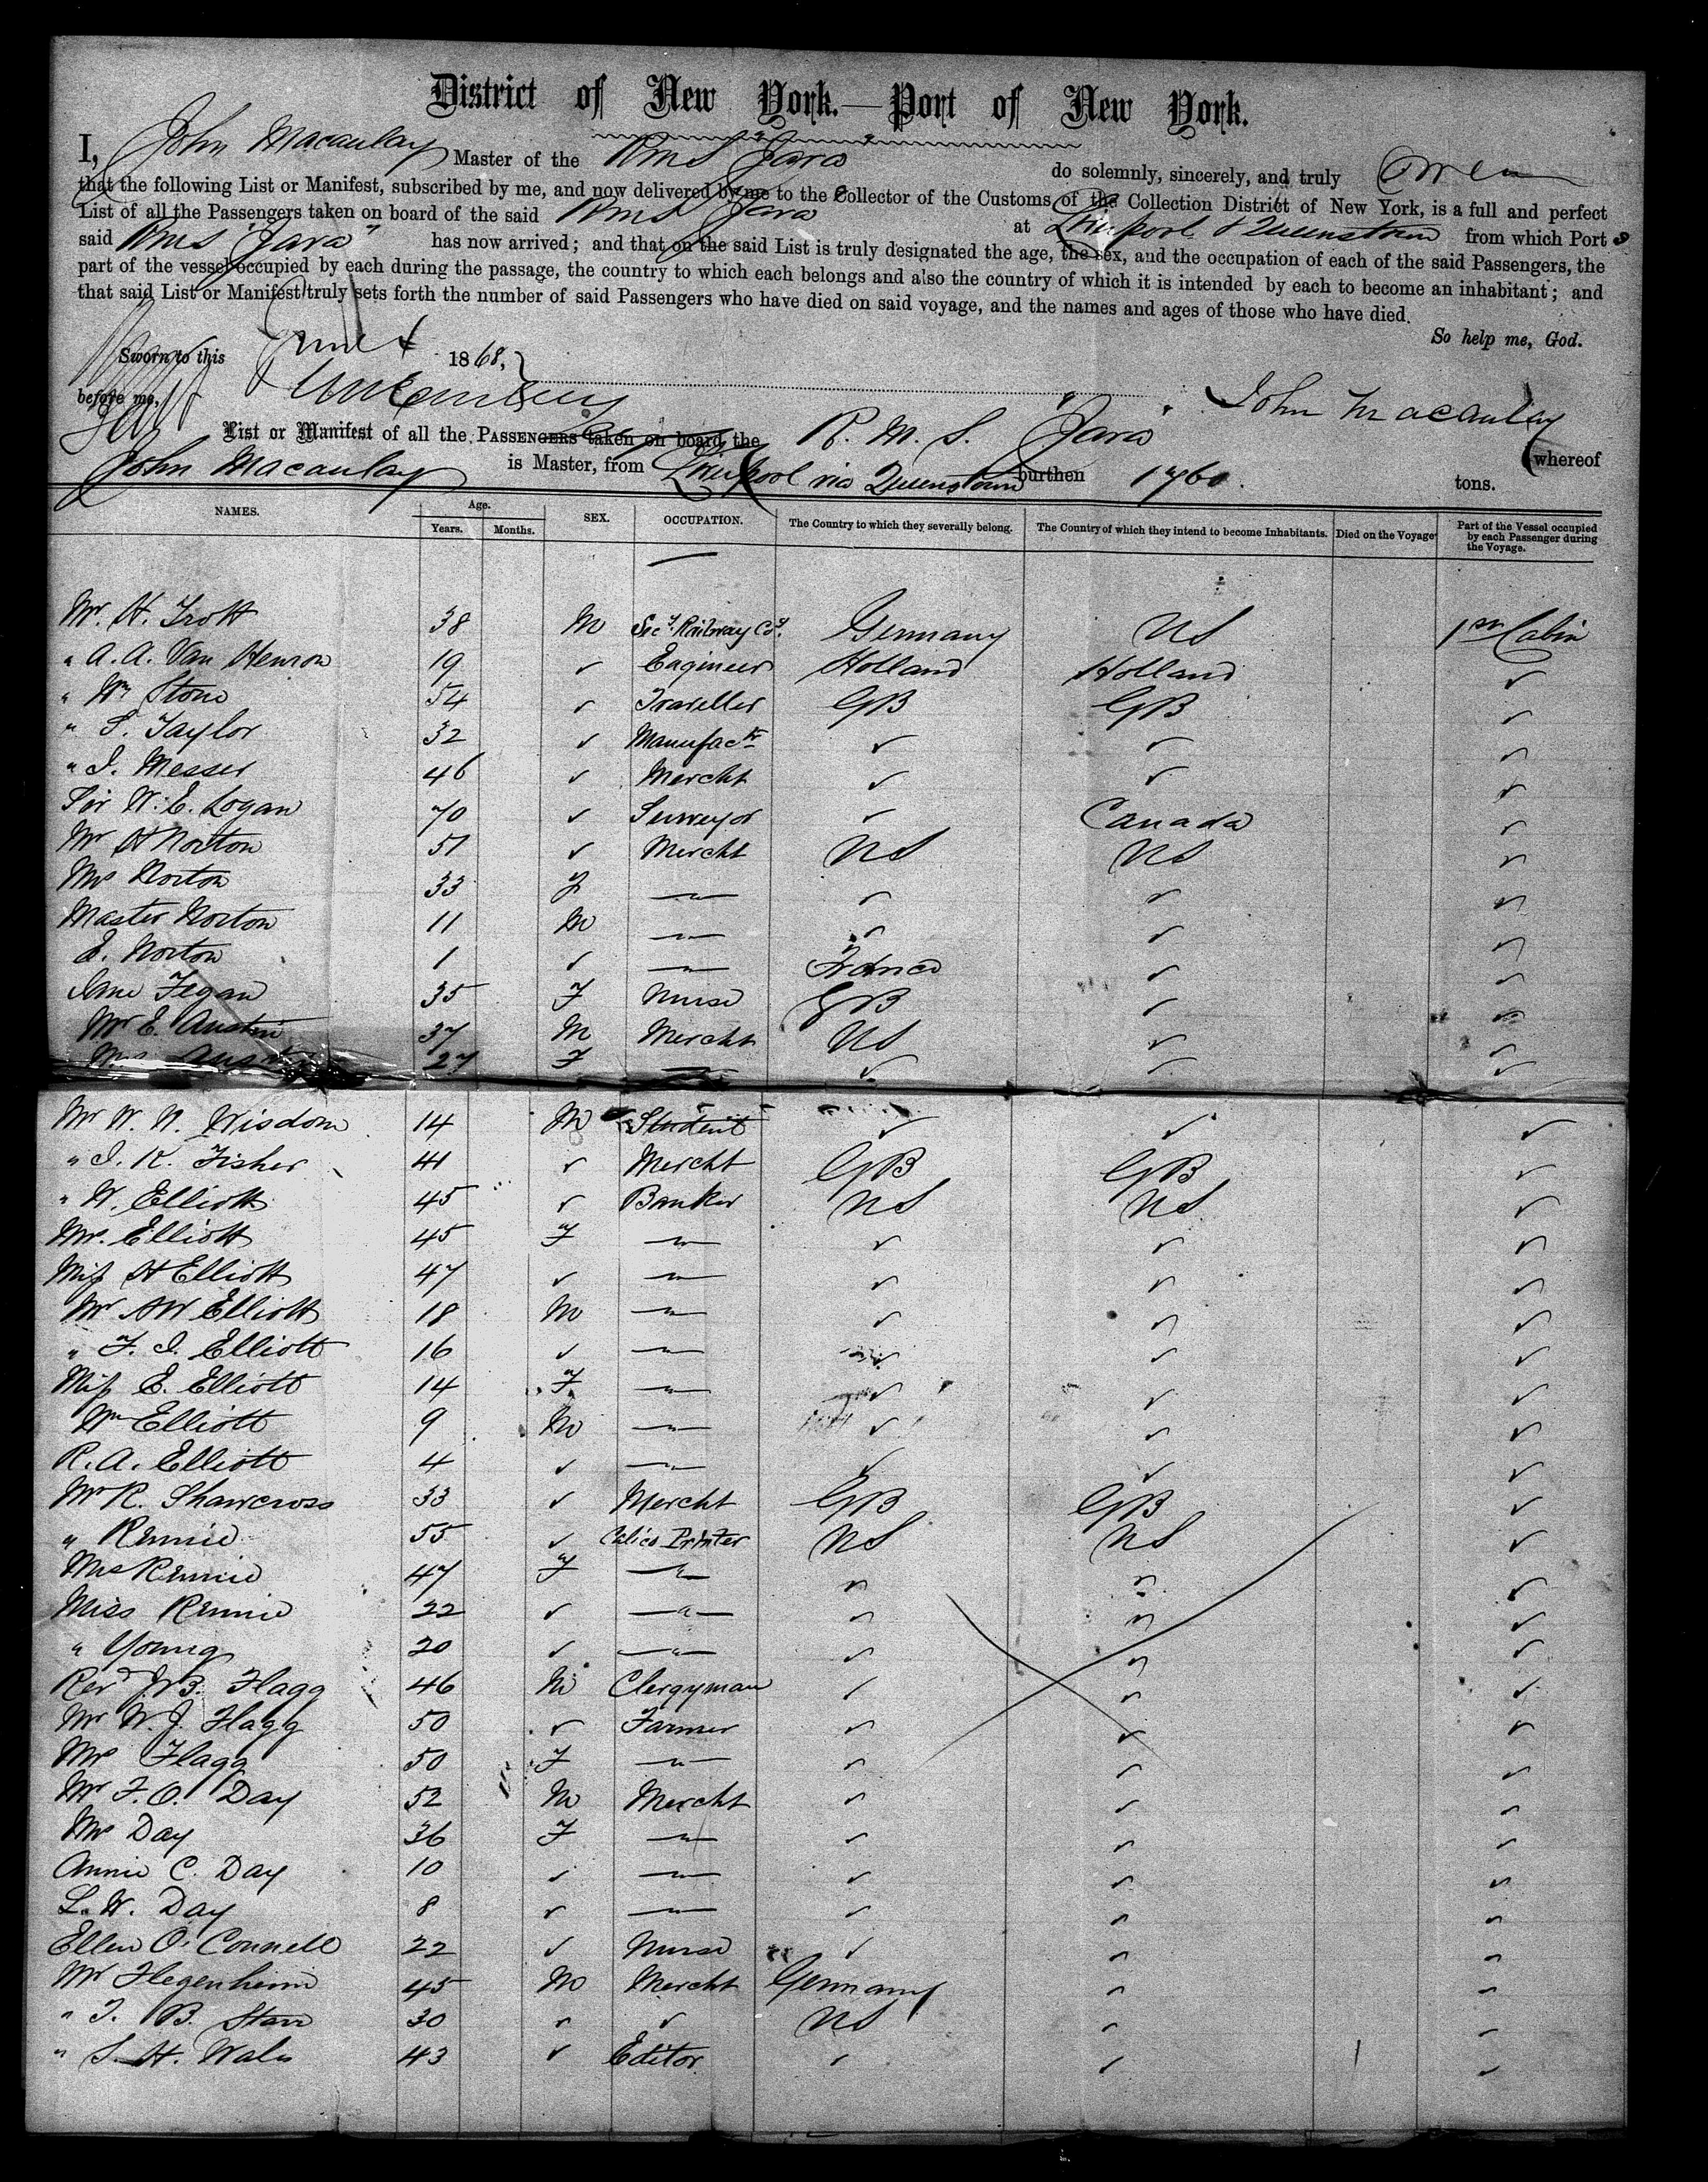 District of New York.—Port of New York.
I, John Macaulay Master of the RMS "Java" do solemnly, sincerely, and truly
that the following List or Manifest, subscribed by me, and now delivered by me to the Collector of the Customs of the Collection District of New York, is a full and perfect
List of all the Passengers taken on board of the said RMS Java at Liverpool & Queenstown from which Port
said RMS "Java" has now arrived; and that on the said List is truly designated the age, the sex, and the occupation of each of the said Passengers, the
part of the vessel occupied by each during the passage, the country to which each belongs and also the country of which it is intended by each to become an inhabitant; and
that said List or Manifest truly sets forth the number of said Passengers who have died on said voyage, and the names and ages of those who have died.
So help me, God.
Sworn to this 1868,
before me, John Macaulay
List or Manifest of all the Passengers taken on board the R. M. S. Java whereof
John Macaulay is Master, from Liverpool via Queenstown burthen 1760. tons.
NAMES. Age. Years. Months. SEX. OCCUPATION. The Country to which they severally belong. The Country of which they intend to become Inhabitants. Died on the Voyage Part of the Vessel occupied by each Passenger during the Voyage.
Mr. H. Trott 38 M Secy. Railway Coy. Germany US 1st Cabin
" A. A. Van 19 ✓ Engineer Holland Holland ✓
" Wm Stone 54 ✓ Traveller GB GB ✓
" S. Taylor 32 ✓ Manufactr ✓ ✓ ✓
" J. Messer 46 ✓ Mercht ✓ ✓ ✓
Sir W. E. Logan 70 ✓ Surveyor ✓ Canada ✓
Mr H Norton 51 ✓ Mercht US US ✓
Mrs Norton 33 F — " — ✓ ✓ ✓
Master Norton 11 M — " — ✓ ✓ ✓
E. Norton 1 ✓ — " — France ✓ ✓
Jane Fegan 35 F Nurse GB ✓ ✓
Mr E. Austin 37 M Mercht US ✓ ✓
Mrs Austin 27 F — " — ✓ ✓ ✓
Mr W. N. Wisdom 14 M Student ✓ ✓ ✓
" J. K. Fisher 41 ✓ Mercht GB GB ✓
" W. Elliott 45 ✓ Banker US US ✓
Mrs. Elliott 45 F — " — ✓ ✓ ✓
Miss H Elliott 47 ✓ — " — ✓ ✓ ✓
Mr AW Elliott 18 M — " — ✓ ✓ ✓
" F. J. Elliott 16 ✓ — " — ✓ ✓ ✓
Miss E. Elliott 14 F — " — ✓ ✓ ✓
Wm Elliott 9 M — " — ✓ ✓ ✓
R. A. Elliott 4 ✓ — " — ✓ ✓ ✓
Mr R. Shawcross 33 ✓ Mercht GB GB ✓
" Rennie 55 ✓ Calico Printer US US ✓
Mrs Rennie 47 F — " — ✓ ✓ ✓
Miss Rennie 22 ✓ — " — ✓ ✓ ✓
" Young 20 ✓ — " — ✓ ✓ ✓
Revd J. B. Flagg 46 M Clergyman ✓ ✓ ✓
Mr W. J. Flagg 50 ✓ Farmer ✓ ✓ ✓
Mrs Flagg 50 F — " — ✓ ✓ ✓
Mr F. O. Day 52 M Mercht ✓ ✓ ✓
Mrs Day 36 F — " — ✓ ✓ ✓
Annie C. Day 10 ✓ — " — ✓ ✓ ✓
L. W. Day 8 ✓ — " — ✓ ✓ ✓
Ellen O'Connell 22 ✓ Nurse ✓ ✓ ✓
Mr Hegenheim 45 M Mercht Germany ✓ ✓
" T. B. Starr 30 ✓ ✓ US ✓ ✓
" S. H. Wales 43 ✓ Editor ✓ ✓ ✓